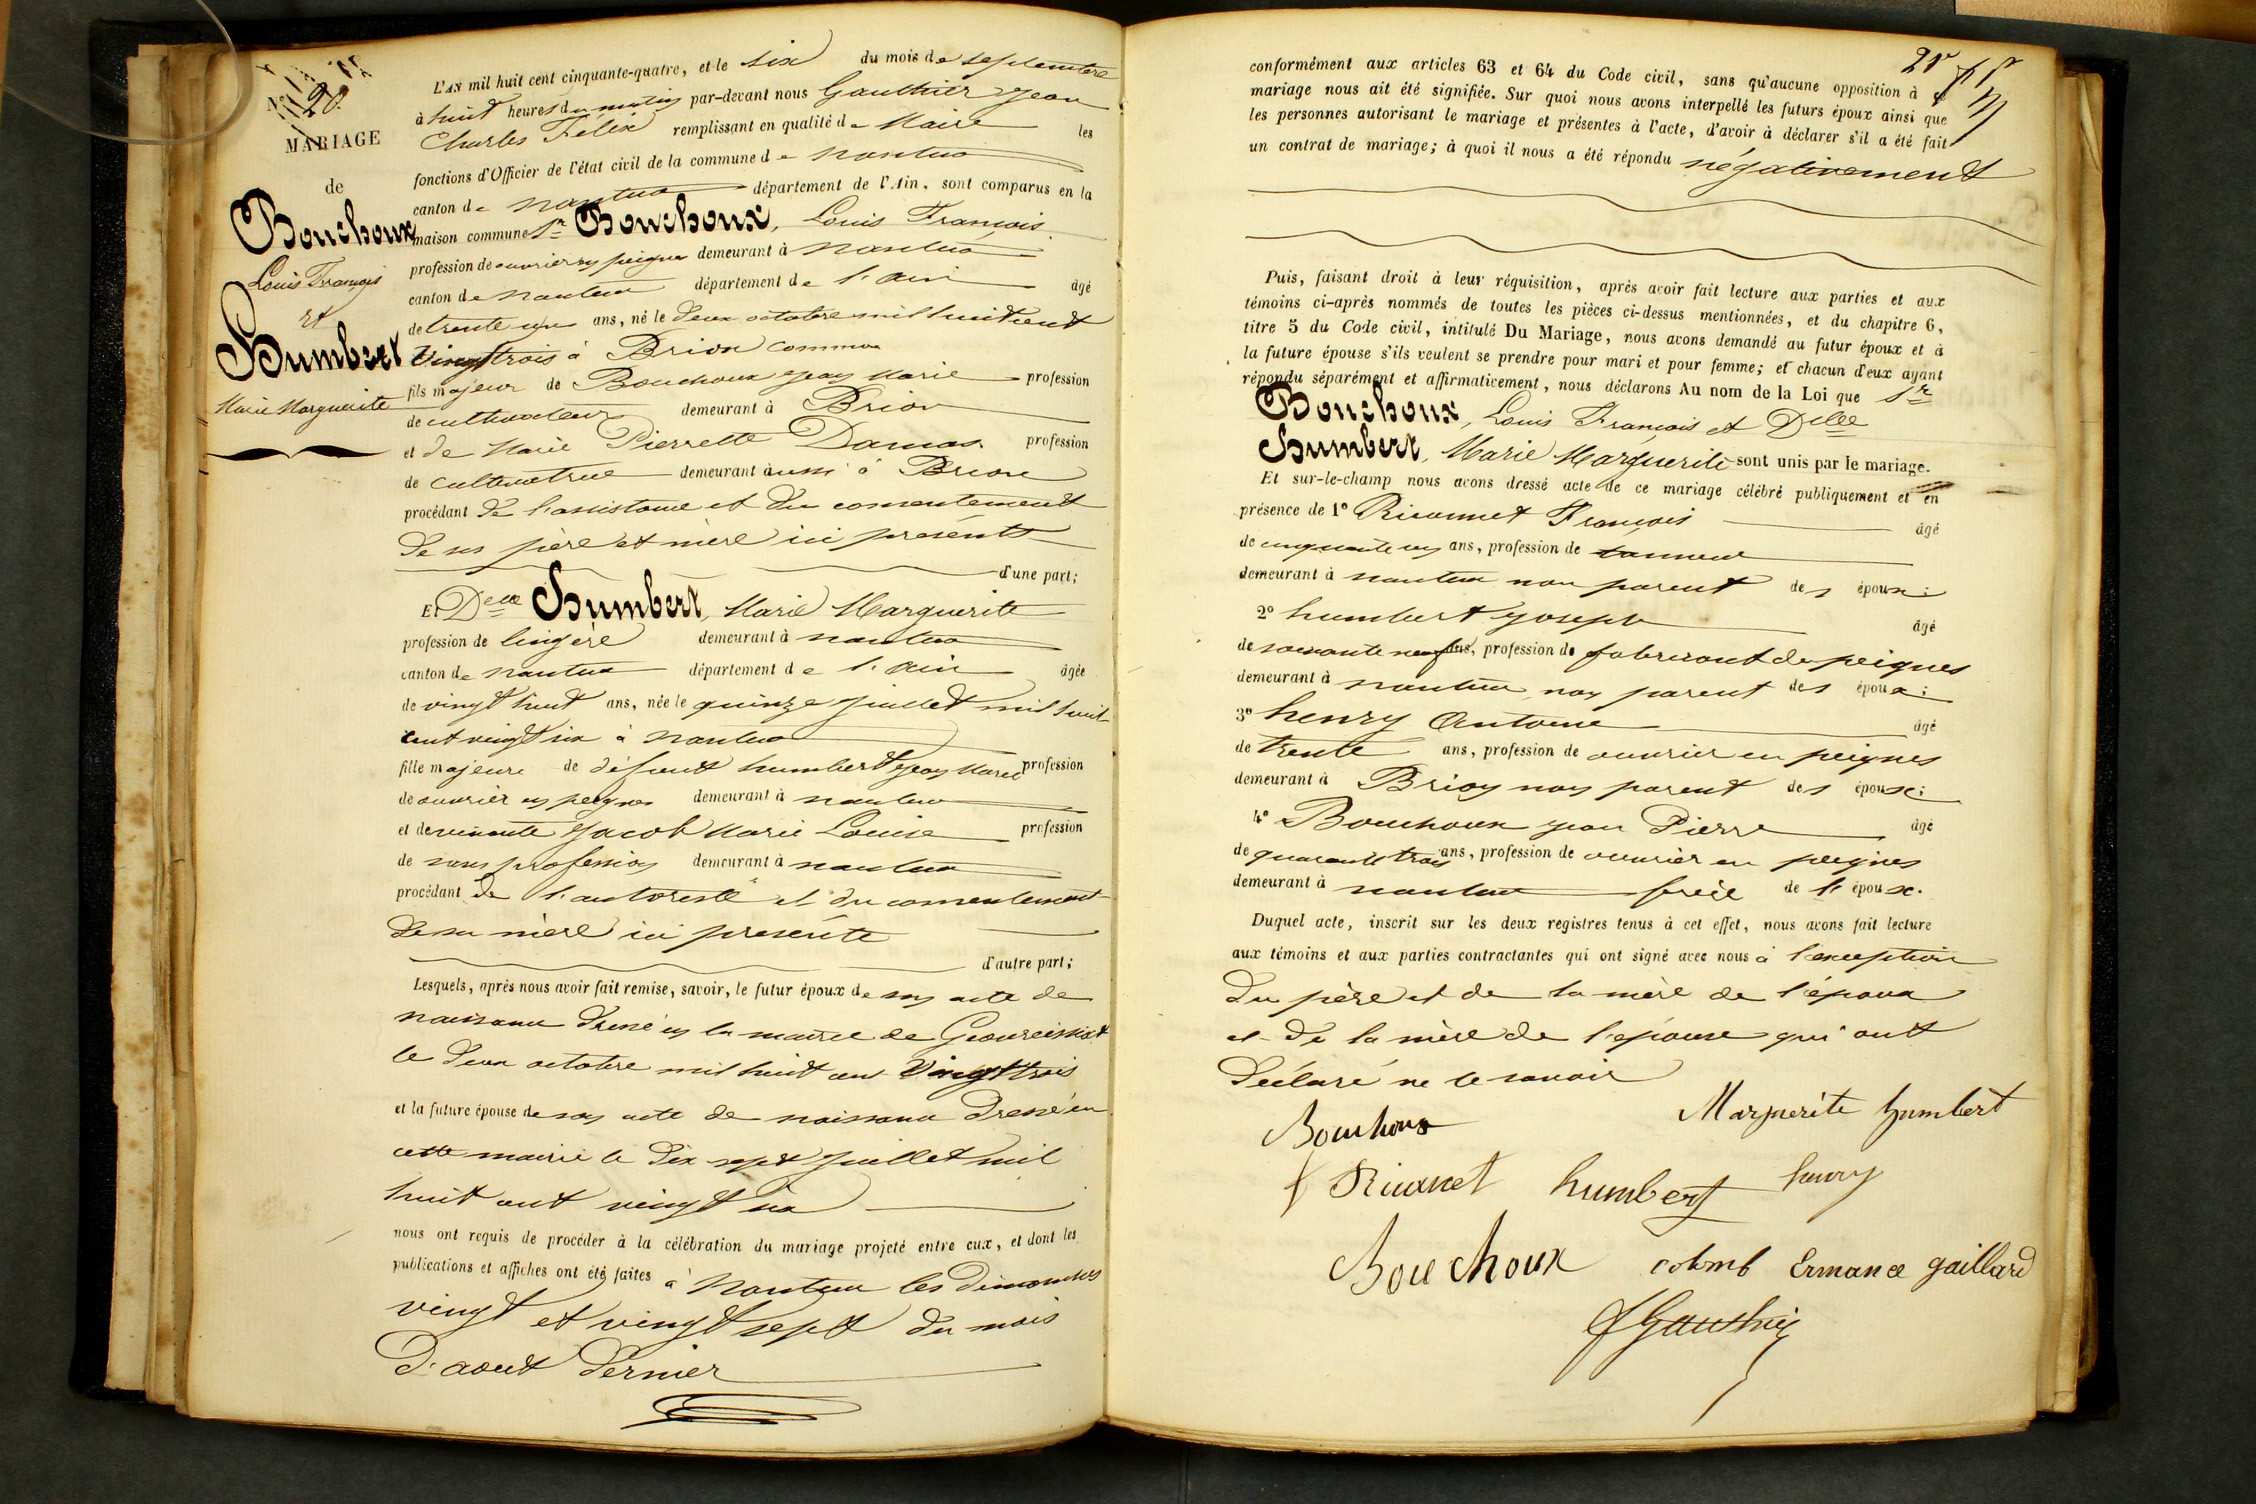 N° 20.
MARIAGE
de
Bouchoux
Louis François
et
Humbert
Marie Marguerite
L'AN mil huit cent cinquante-quatre, et le six du mois de septembre
à huit heures du matin par-devant nous Gauthier Jean
Charles Félix remplissant en qualité de Maire les
fonctions d'Officier de l'état civil de la commune de nantua
canton de nantua département de l'Ain, sont comparus en la
maison commune Sr Bouchoux, Louis François
profession de ouvrier en peignes demeurant à nantua
canton de nantua département de l'ain âgé
de trente un ans, né le deux octobre mil huit cent
vingt trois à Brion
fils majeur de Bouchoux Jean Marie profession
de cultivateur demeurant à Brion
et de Marie Pierrette Damas profession
de cultivatrice demeurant aussi à Brion
procédant de l'assistance et du consentement
de ses père et mère ici présents
d'une part;
Et Delle Humbert, Marie Marguerite
profession de lingère demeurant à nantua
canton de nantua département de l'ain âgée
de vingt huit ans, née le quinze juillet mil huit
cent vingt six à nantua
fille majeure de défunt humbert Jean Marie profession
de ouvrier en peignes demeurant à nantua
et de vivante Jacob Marie Louise profession
de sans profession demeurant à nantua
procédant de l'autorité et du consentement
de sa mère ici présente
d'autre part;
Lesquels, après nous avoir fait remise, savoir, le futur époux de son acte de
naissance dressé en la mairie de Geovreissiat
le deux octobre mil huit cent vingt trois
et la future épouse de son acte de naissance dressé en
cette mairie le dix sept juillet mil
huit cent vingt six
nous ont requis de procéder à la célébration du mariage projeté entre eux, et dont les
publications et affiches ont été faites à nantua les dimanches
vingt et vingt sept du mois
d'aout dernier
conformément aux articles 63 et 64 du Code civil, sans qu'aucune opposition à
mariage nous ait été signifiée. Sur quoi nous avons interpellé les futurs époux ainsi que
les personnes autorisant le mariage et présentes à l'acte, d'avoir à déclarer s'il a été fait
un contrat de mariage; à quoi il nous a été répondu négativement
Puis, faisant droit à leur réquisition, après avoir fait lecture aux parties et aux
témoins ci-après nommés de toutes les pièces ci-dessus mentionnées, et du chapitre 6,
titre 5 du Code civil, intitulé Du Mariage, nous avons demandé au futur époux et à
la future épouse s'ils veulent se prendre pour mari et pour femme; et chacun d'eux ayant
répondu séparément et affirmativement, nous déclarons Au nom de la Loi que Sr
Bouchoux, Louis François et Delle
Humbert, Marie Marguerite sont unis par le mariage.
Et sur-le-champ nous avons dressé acte de ce mariage célébré publiquement et en
présence de 1° Ricannet François âgé
de cinquante un ans, profession de tanneur
demeurant à nantua non parent des époux;
2° humbert Joseph âgé
de soixante neuf ans, profession de fabricant de peignes
demeurant à nantua non parent des époux;
3° henry Antoine âgé
de trente ans, profession de ouvrier en peignes
demeurant à Brion non parent des époux;
4° Bouchoux Jean Pierre âgé
de quarante trois ans, profession de ouvrier en peignes
demeurant à nantua frère de l'époux.
Duquel acte, inscrit sur les deux registres tenus à cet effet, nous avons fait lecture
aux témoins et aux parties contractantes qui ont signé avec nous à l'exception
du père et de la mère de l'époux
et de la mère de l'épouse qui ont
déclaré ne le savoir
Bouchoux Marguerite humbert
Ricanet humbert henry
Bouchoux colomb Ermance gaillard
Gauthier